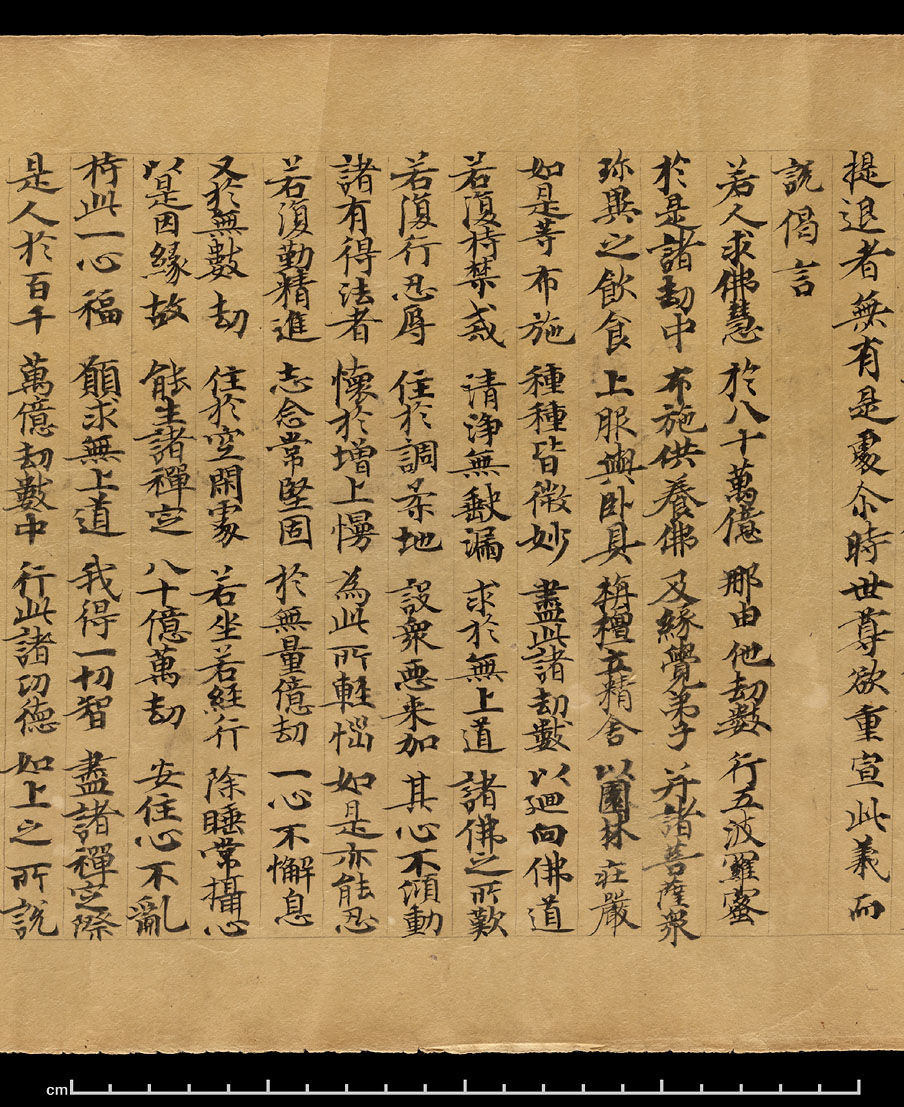 提退者無有是處尒時世尊欲重宣此義而
說偈言
若人求佛慧 於八十萬億 那由他劫數 行五波羅蜜
於是諸劫中 布施供養佛 及緣覺弟子 并諸菩薩眾
珎異之飲食 上服與臥具 栴檀立精舍 以園林莊嚴
如是等布施 種種皆微妙 盡此諸劫數 以迴向佛道
若復持禁戒 清淨無缺漏 求於無上道 諸佛之所歎
若復行忍辱 住於調柔地 設眾惡来加 其心不傾動
諸有得法者 懷於增上慢 為此所輕惱 如是亦能忍
若復勤精進 志念常堅固 於無量億劫 一心不懈息
又於無數劫 住於空閑處 若坐若經行 除睡常攝心
以是因緣故 能生諸禪定 八十億萬劫 安住心不亂
持此一心福 願求無上道 我得一切智 盡諸禪定際
是人於百千 萬億劫數中 行此諸功德 如上之所說
cm